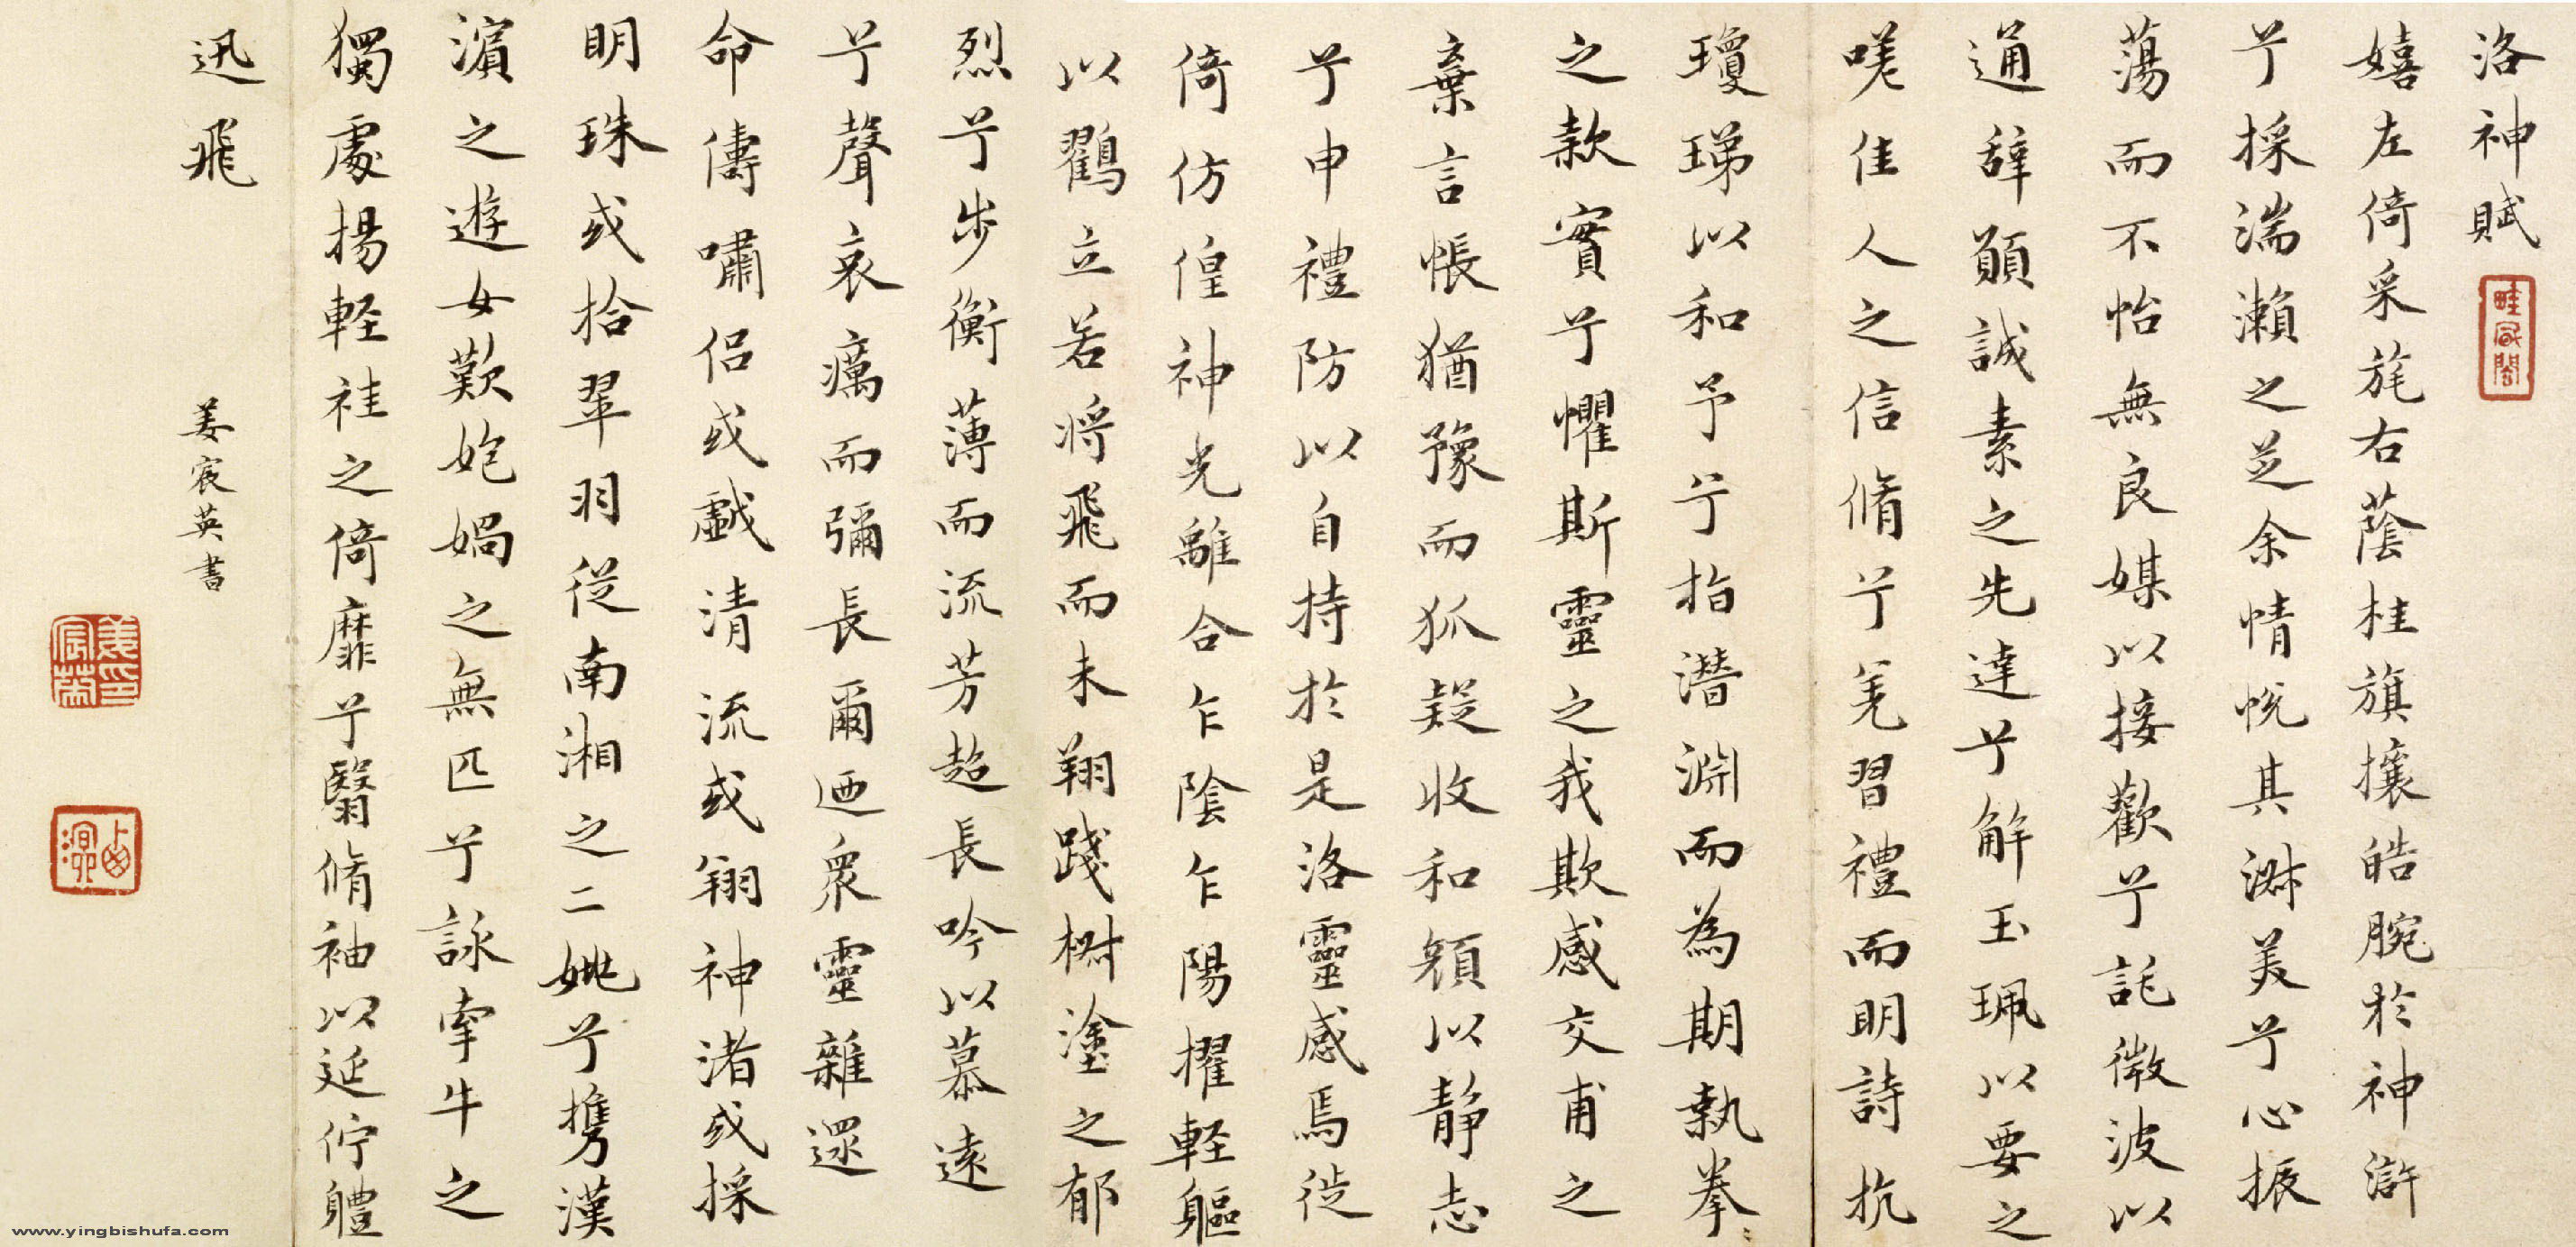 洛神賦
嬉左倚采旄右蔭桂旗攘皓腕於神滸
兮採湍瀨之芝余情悅其淋美兮心振
蕩而不怡無良媒以接歡兮託微波以
通辞願誠素之先達兮解玉珮以要之
嗟佳人之信脩兮羌習禮而明詩抗
瓊珶以和予兮指潛淵而為期執拳〻
之款實兮懼斯靈之我欺感交甫之
棄言悵猶豫而狐疑收和顏以静志
兮申禮防以自持於是洛靈感焉徙
倚仿偟神光離合乍陰乍陽擢軽軀
以鸛立若将飛而未翔踐椒塗之郁
烈兮步衡薄而流芳超長吟以慕遠
兮聲哀癘而彌長爾迺衆靈雜遝
命儔嘯侣或戯清流或翔神渚或採
明珠或拾翠羽從南湘之二姚兮攜漢
濵之遊女歎匏媧之無匹兮詠牽牛之
獨處揚軽袿之倚靡兮翳脩袖以延佇軆
迅飛
姜宸英書
姜宸英印
www.yingbishufa.com